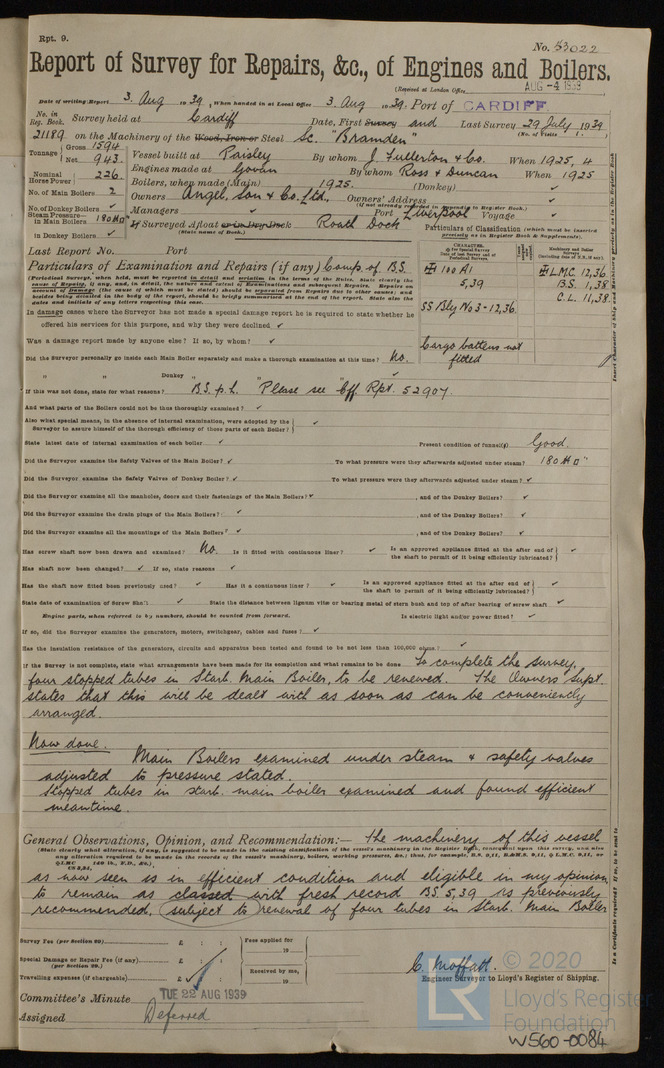 Rpt. 9.
No. 53022
Report of Survey for Repairs, &c., of Engines and Boilers.
(Received at London Office AUG -4 1939
Date of writing Report 3. Aug 1939, When handed in at Local Office 3. Aug 1939. Port of CARDIFF
No. in Reg. Book. Survey held at Cardiff Date, First Survey and Last Survey 29 July 1939
21189 on the Machinery of the Wood, Iron or Steel Sc. "Bramden" (No. of Visits 1.)
Tonnage Gross 1594 Net 943.
Vessel built at Paisley By whom J. Fullerton & Co. When 1925, 4
Nominal Horse Power 226.
Engines made at Govan By whom Ross & Duncan When 1925
No. of Main Boilers 2
Boilers, when made (Main) 1925. (Donkey) ✓
No. of Donkey Boilers ✓
Owners Angel, Son & Co. Ltd. Owners' Address ✓
(If not already recorded in Appendix to Register Book.)
Steam Pressure— in Main Boilers 180 lb □"
Managers ✓ Port Liverpool Voyage ✓
in Donkey Boilers ✓
If Surveyed Afloat or in Dry Dock Roath Dock
(State name of Dock.)
Particulars of Classification (which must be inserted precisely as in Register Book & Supplements).
Last Report No. Port
Particulars of Examination and Repairs (if any) Comp. of B.S.
✠ 100 A1
5,39
SS Bly No 3 - 12,36.
Cargo battens not fitted
✠ L.M.C. 12,36.
B.S. 1,38
C.L. 11,38.
In damage cases where the Surveyor has not made a special damage report he is required to state whether he
offered his services for this purpose, and why they were declined ✓
Was a damage report made by anyone else? If so, by whom? ✓
Did the Surveyor personally go inside each Main Boiler separately and make a thorough examination at this time? No.
" " Donkey " ✓
If this was not done, state for what reasons? B.S. p.h. Please see Cff. Rpt. 52907.
And what parts of the Boilers could not be thus thoroughly examined? ✓
Also what special means, in the absence of internal examination, were adopted by the
Surveyor to assure himself of the thorough efficiency of those parts of each Boiler? ✓
State latest date of internal examination of each boiler ✓ Present condition of funnel(s) Good.
Did the Surveyor examine the Safety Valves of the Main Boiler? ✓ To what pressure were they afterwards adjusted under steam? 180 lb □"
Did the Surveyor examine the Safety Valves of Donkey Boiler? ✓ To what pressure were they afterwards adjusted under steam? ✓
Did the Surveyor examine all the manholes, doors and their fastenings of the Main Boilers? ✓, and of the Donkey Boilers? ✓
Did the Surveyor examine the drain plugs of the Main Boilers? ✓, and of the Donkey Boilers? ✓
Did the Surveyor examine all the mountings of the Main Boilers? ✓, and of the Donkey Boilers? ✓
Has screw shaft now been drawn and examined? No. Is it fitted with continuous liner? ✓ Is an approved appliance fitted at the after end of the shaft to permit of it being efficiently lubricated? ✓
Has shaft now been changed? ✓ If so, state reasons ✓
Has the shaft now fitted been previously used? ✓ Has it a continuous liner? ✓ Is an approved appliance fitted at the after end of the shaft to permit of it being efficiently lubricated? ✓
State date of examination of Screw Shaft ✓ State the distance between lignum vitæ or bearing metal of stern bush and top of after bearing of screw shaft ✓
Engine parts, when referred to by numbers, should be counted from forward. Is electric light and/or power fitted? ✓
If so, did the Surveyor examine the generators, motors, switchgear, cables and fuses? ✓
Has the insulation resistance of the generators, circuits and apparatus been tested and found to be not less than 100,000 ohms? ✓
If the Survey is not complete, state what arrangements have been made for its completion and what remains to be done To complete the survey,
four stopped tubes in Starb. Main Boiler, to be renewed. The Owners Supt.
states that this will be dealt with as soon as can be conveniently
arranged.
Now done. Main Boilers examined under steam & safety valves
adjusted to pressure stated.
Stopped tubes in starb. main boiler examined and found efficient
meantime.
General Observations, Opinion, and Recommendation:— The machinery of this vessel
as now seen is in efficient condition and eligible in my opinion
to remain as classed with fresh record BS 5,39 as previously
recommended, subject to renewal of four tubes in Starb. Main Boiler
Survey Fee (per Section 29) £ : :
Special Damage or Repair Fee (if any) (per Section 29.) £ : :
Travelling expenses (if chargeable) £ : :
Fees applied for 19
Received by me, 19
C. Moffatt.
Engineer Surveyor to Lloyd's Register of Shipping.
Committee's Minute TUE 22 AUG 1939
Assigned Deferred
© 2020
Lloyd's Register
Foundation
W560-0084